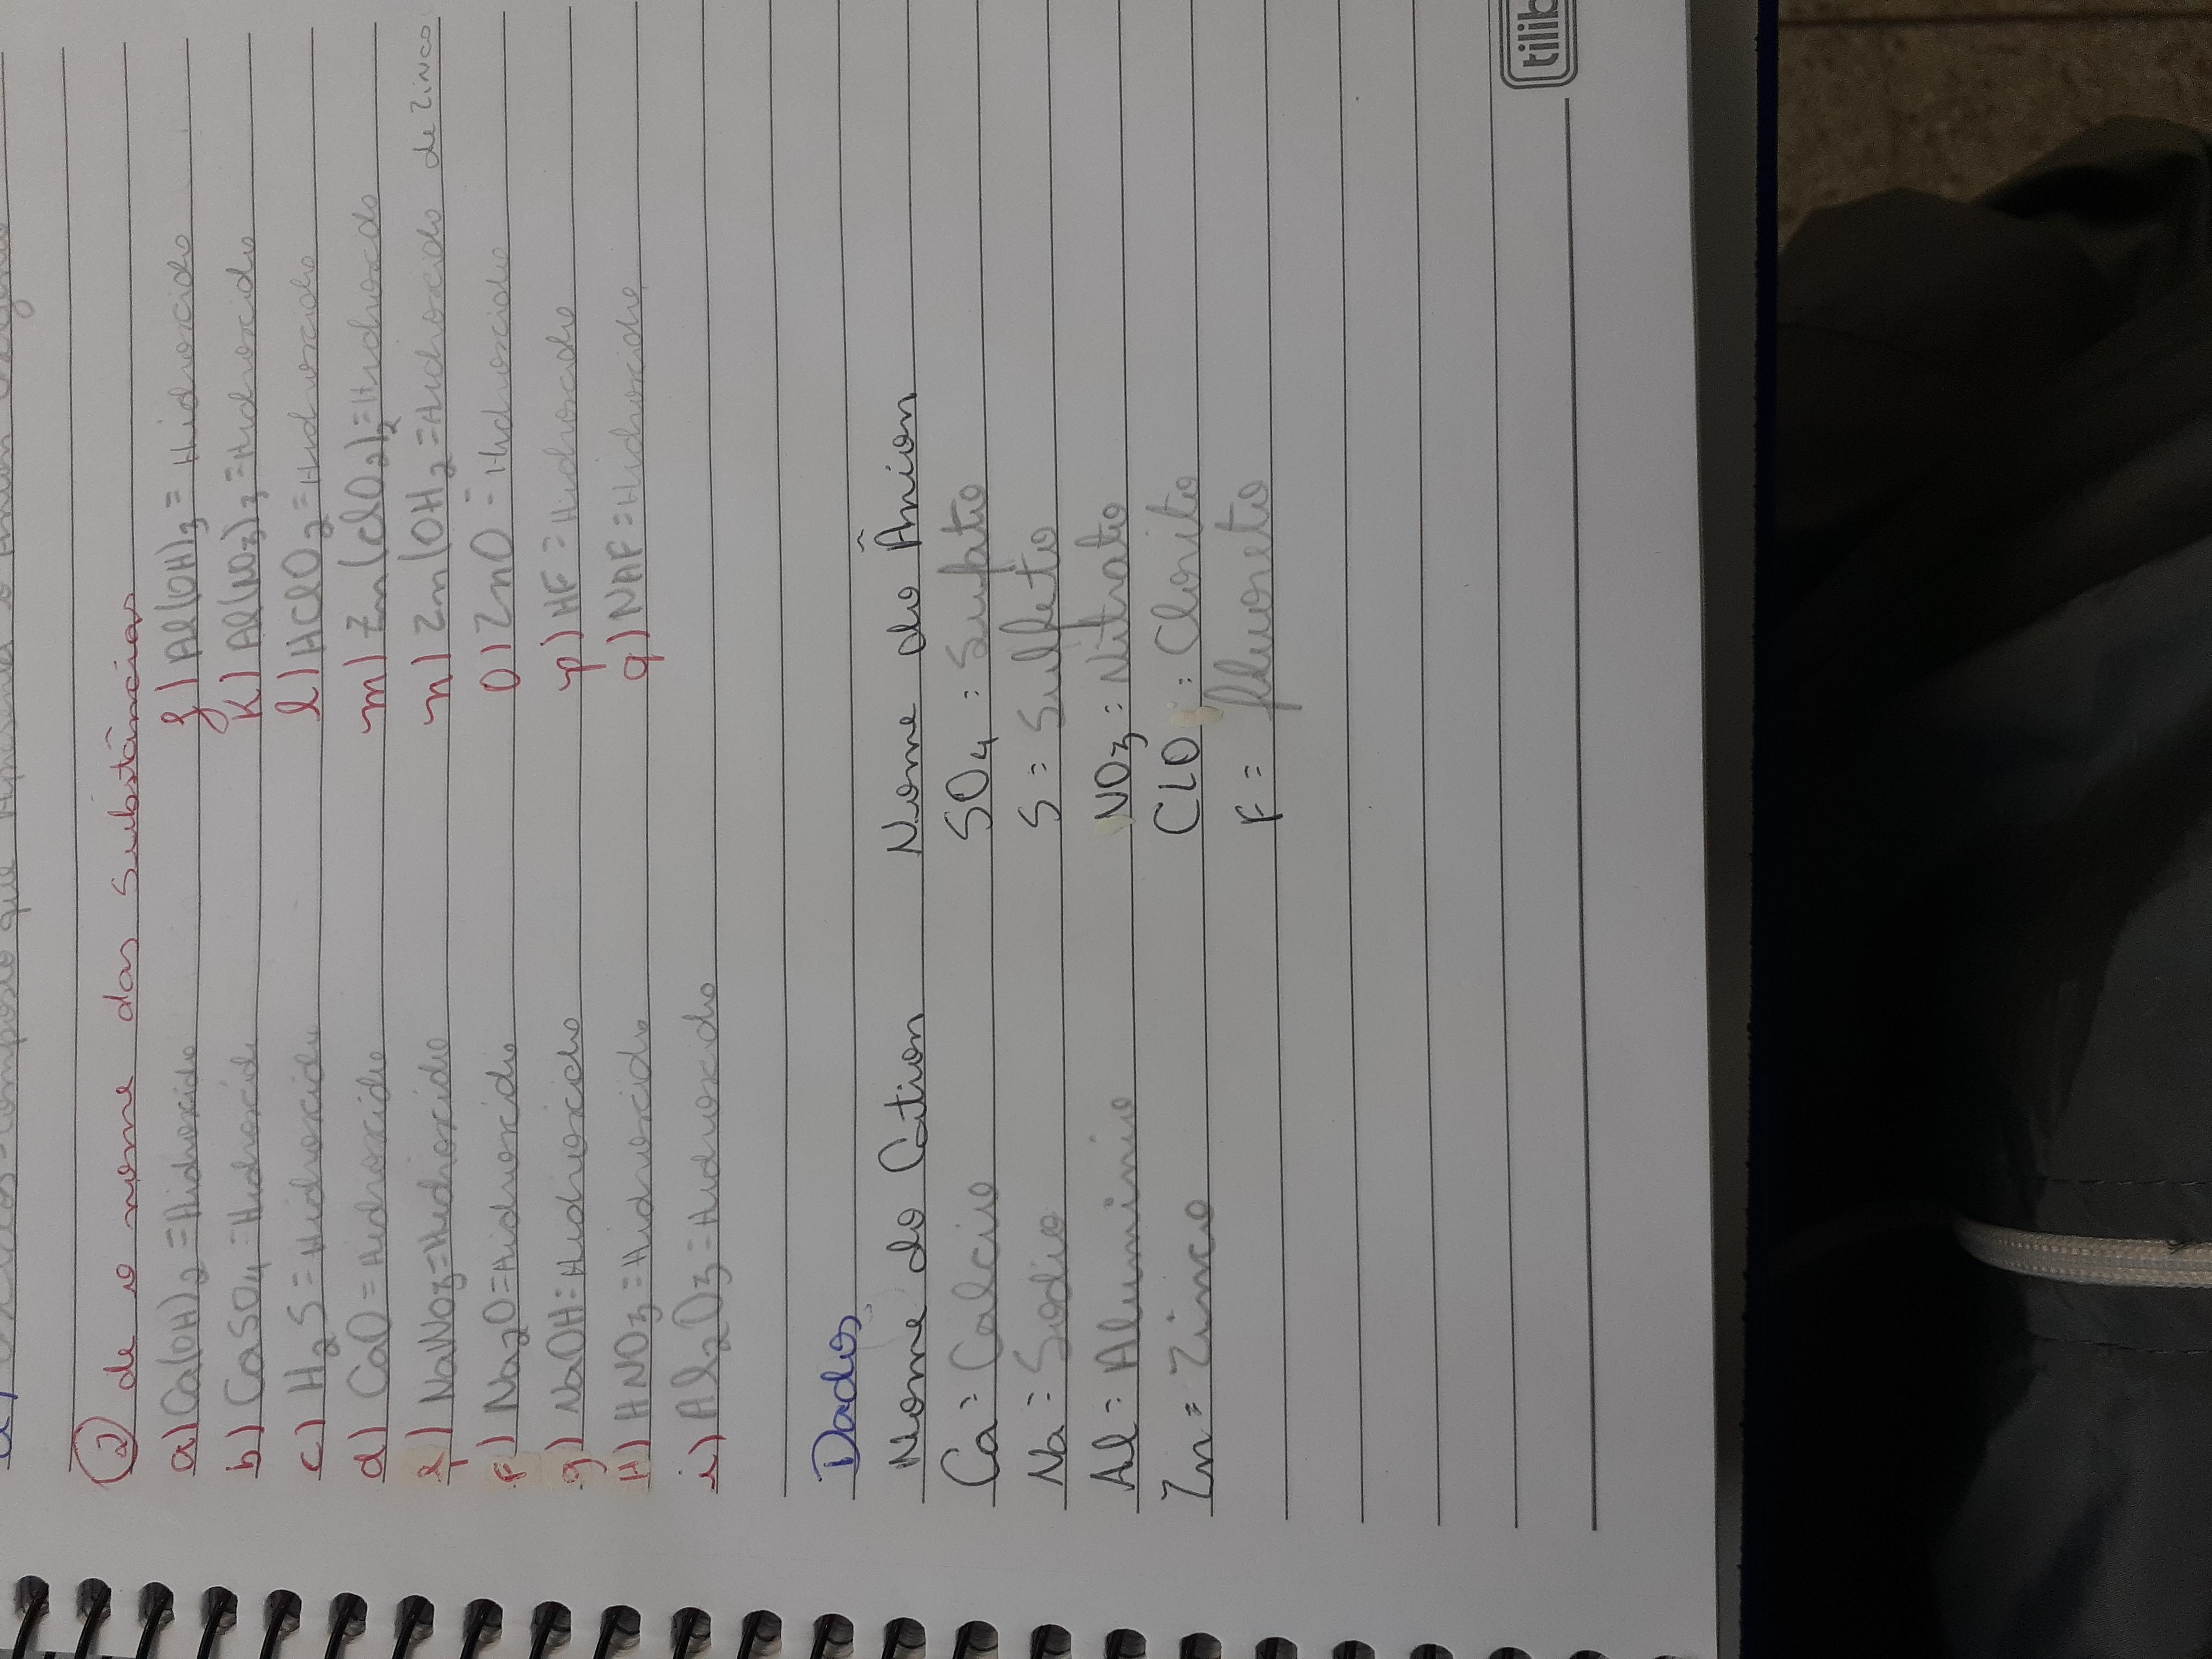 ② de o nome das Substâncias
a) Ca(OH)2 = Hidroxido
b) CaSO4 = Hidroxido
c) H2S = Hidroxido
d) CaO = Hidroxido
e) NaNO3 = Hidroxido
f) Na2O = Hidroxido
g) NaOH = Hidroxido
H) HNO3 = Hidroxido
i) Al2O3 = Hidroxido
j) Al(OH)3 = Hidroxido
K) Al(NO3)3 = Hidroxido
l) HClO2 = Hidroxido
m) Zn(ClO2)2 = Hidroxido
n) Zn(OH2 = Hidroxido de Zinco
o) ZnO = Hidroxido
p) HF = Hidroxido
q) NAF = Hidroxido
Dados
Nome do Cation
Ca = Calcio
Na = Sodio
Al = Aluminio
Zn = Zinco
Nome do Ânion
SO4 = Sulfato
S = Sulfeto
NO3 = Nitrato
ClO = Clorito
F = fluoreto
tilib